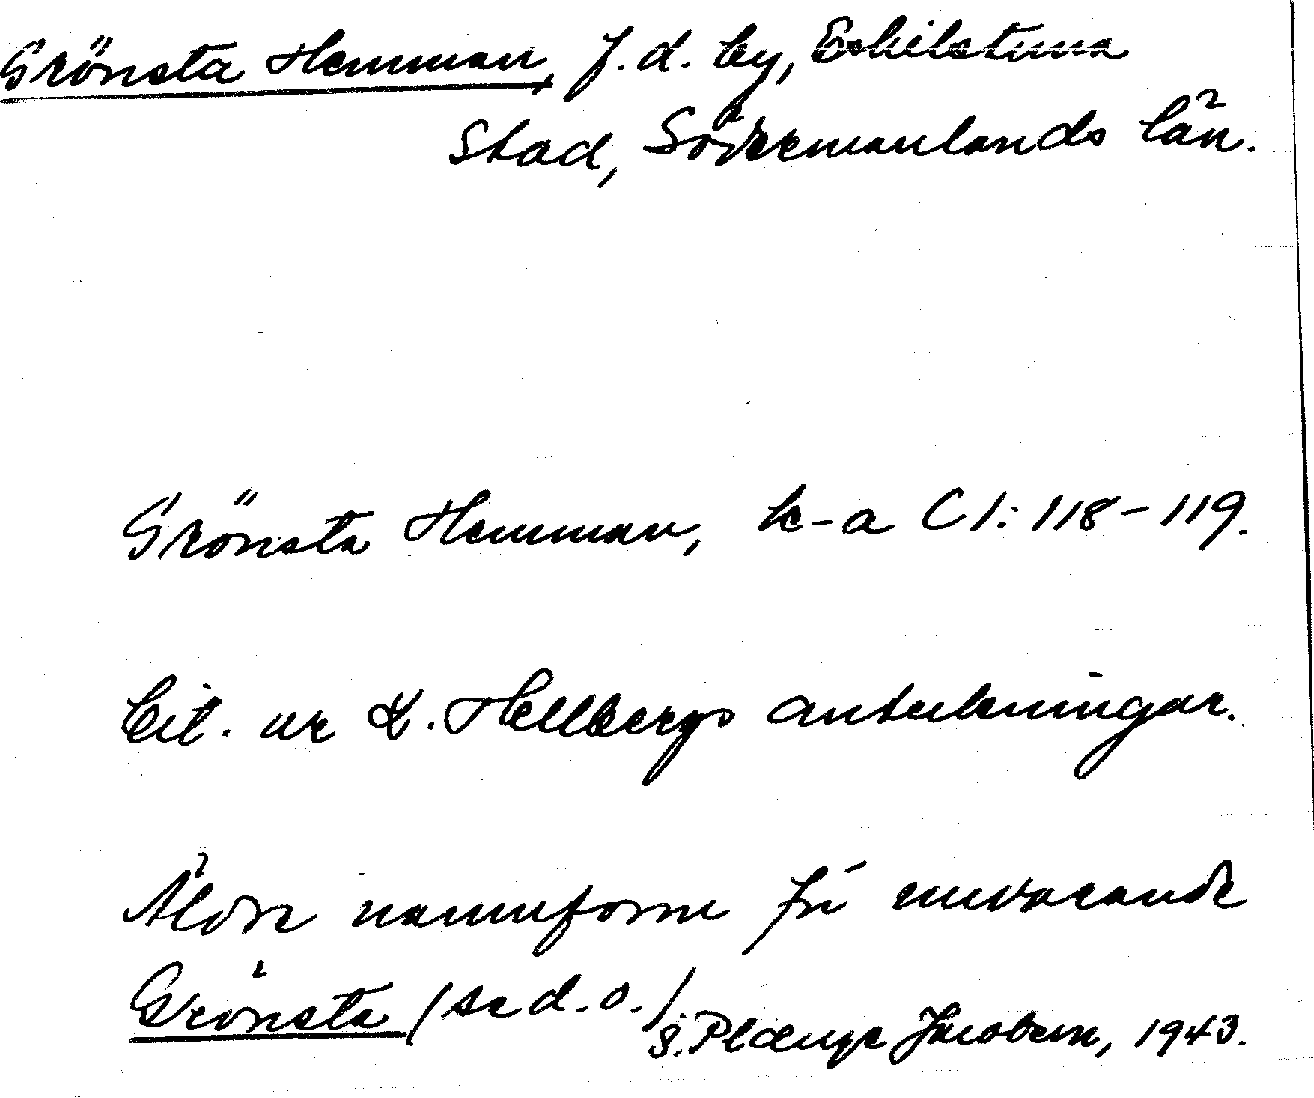 Grönsta Hemman, f.d. by, Eskilstuna
Stad, Södermanlands län.
Grönsta Hemman, k-a C1: 118-119.
Cit. ur L. Hellbergs anteckningar.
Äldre namnform för nuvarande
Grönsta (se d.o.)
G. Jacobsen, 1943.